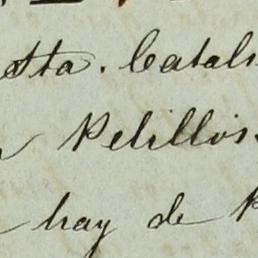 Sta. Catal
Pelillos
hay de